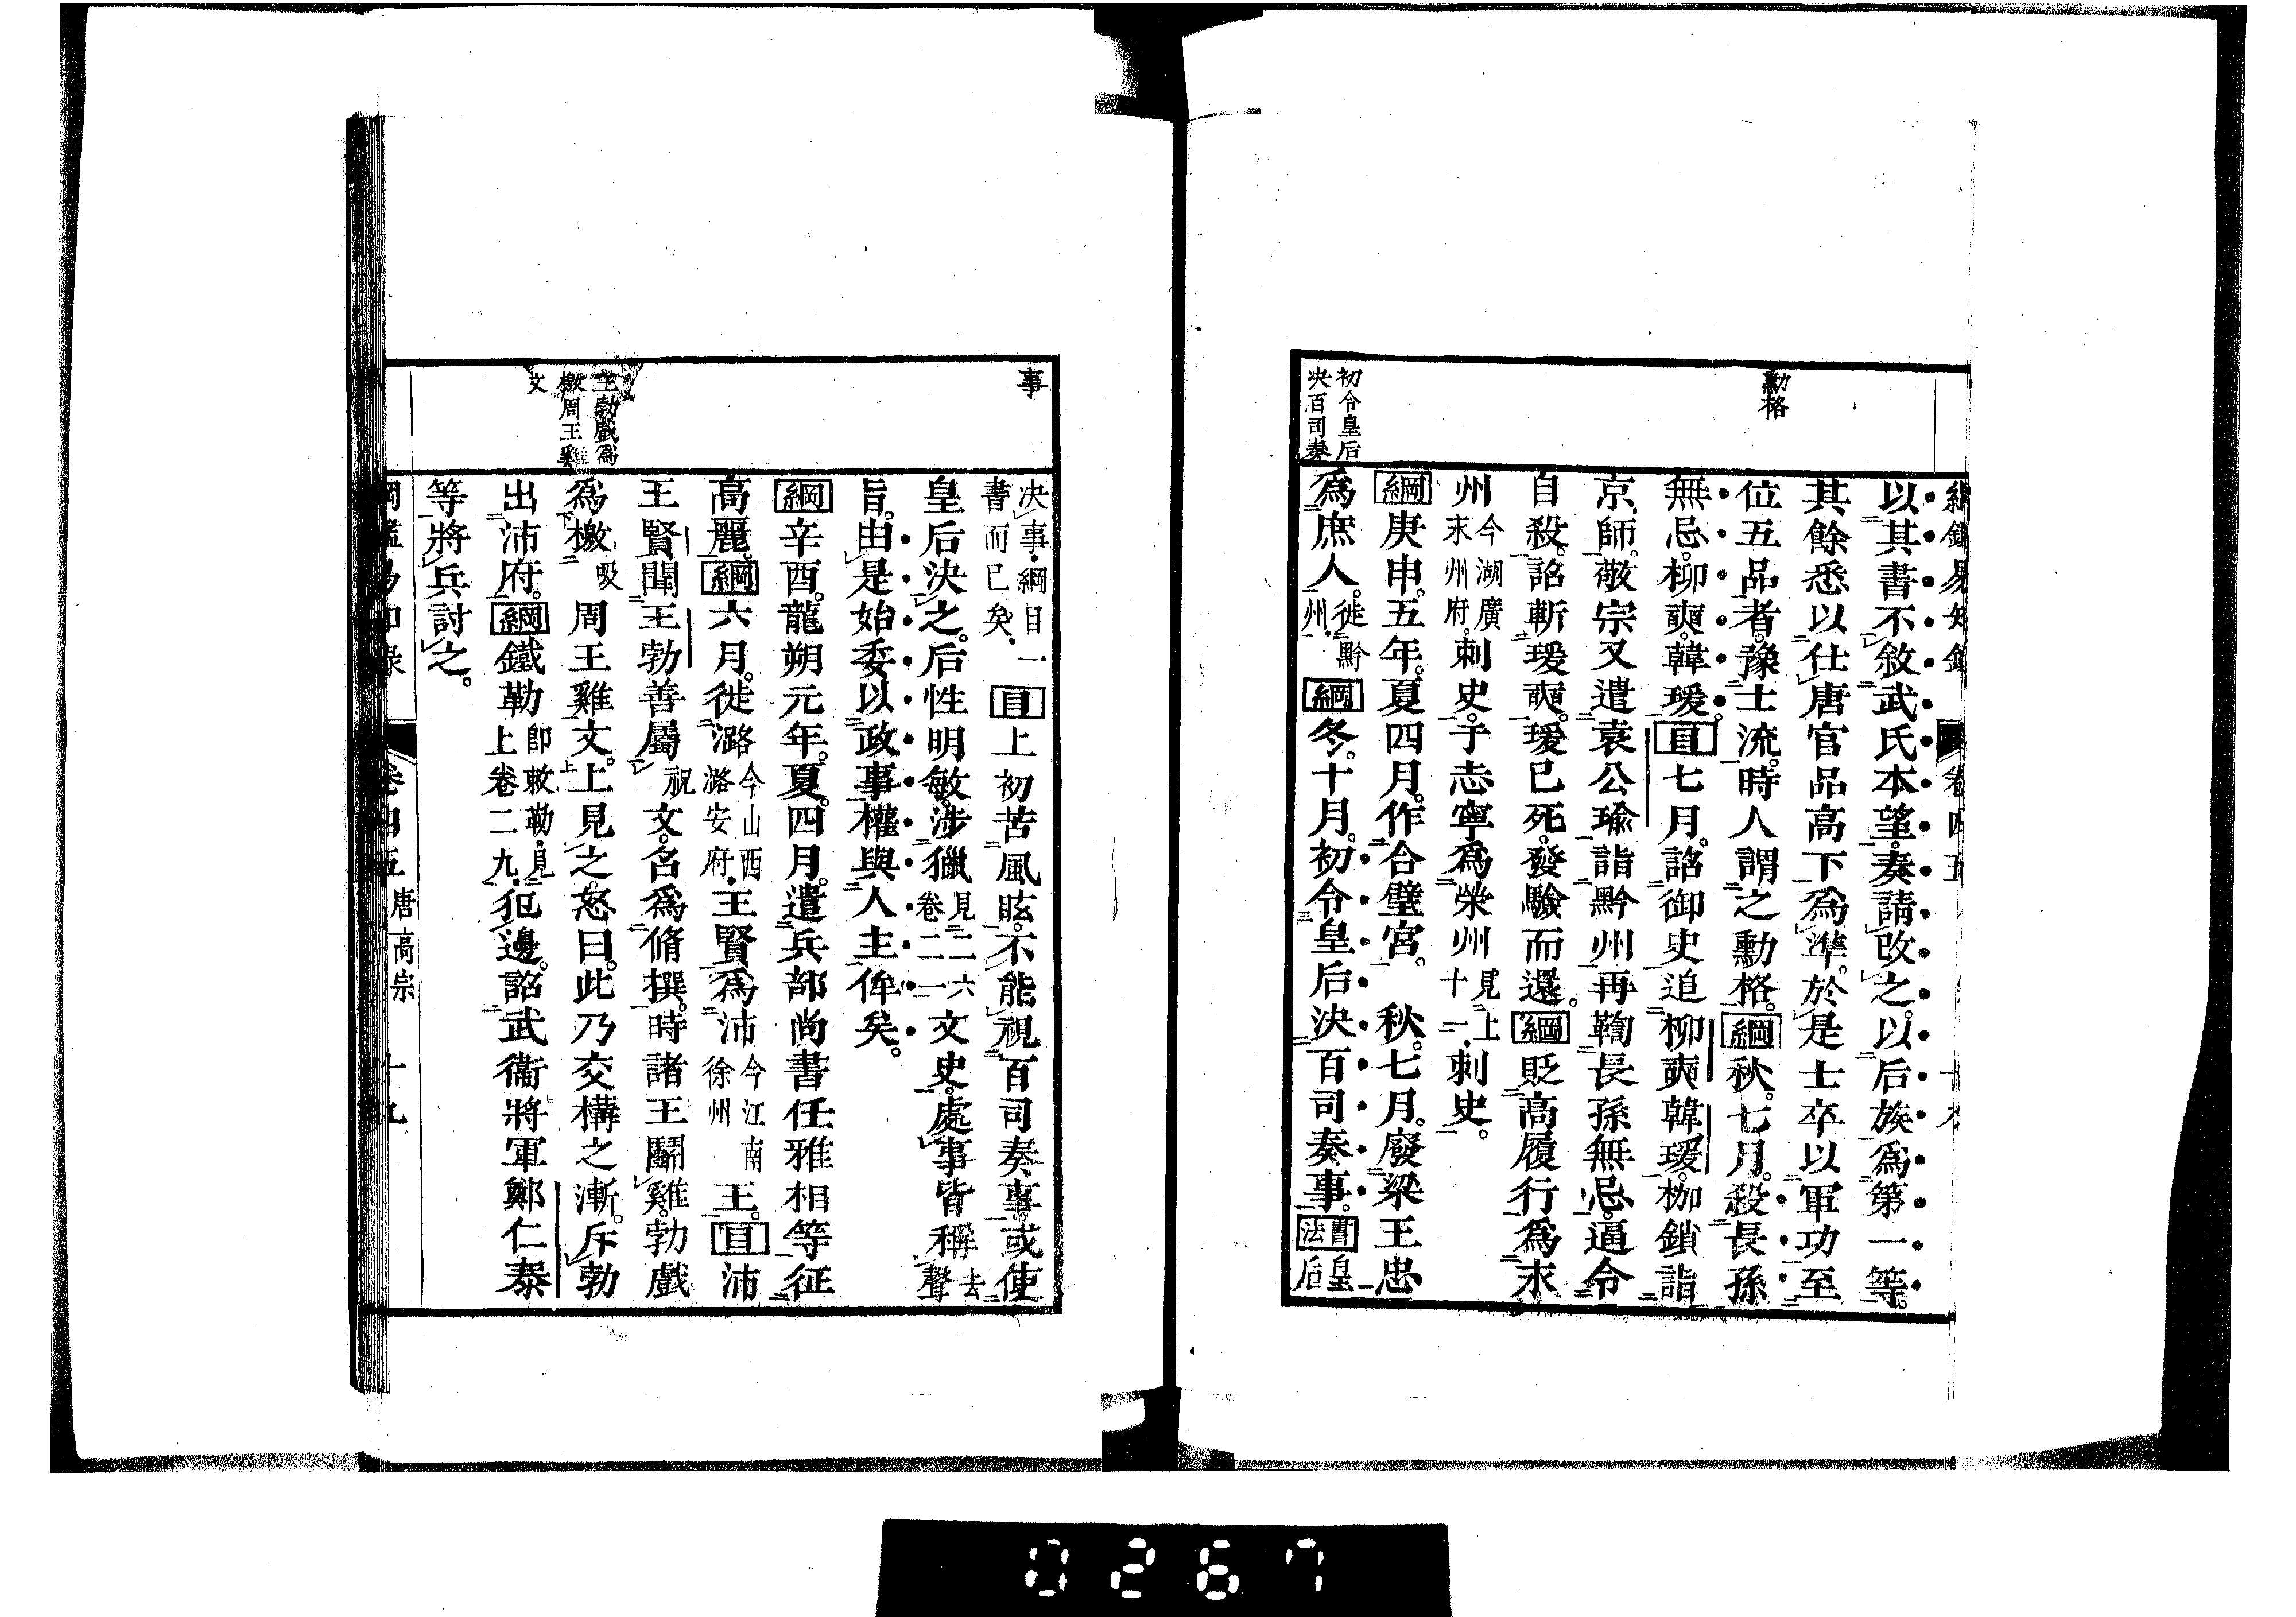 綱鑑易知錄 卷四五
勳格
初令皇后
决百司奏
以其書不敘武氏本望。奏請改之。以后族爲第一等。
其餘悉以仕唐官品高下爲準。於是士卒以軍功至
位五品者。豫士流。時人謂之勳格。綱秋。七月。殺長孫
無忌。柳奭。韓瑗。目七月。詔御史追柳奭韓瑗。枷鎖詣
京師。敬宗又遣袁公瑜詣黔州再鞫長孫無忌。逼令
自殺。詔斬瑗奭。瑗已死。發驗而還。綱貶高履行爲永
州今湖廣永州府。刺史。于志寧爲榮州見上十一。刺史。
綱庚申。五年。夏四月。作合璧宮。 秋。七月。廢梁王忠
爲庶人。徙黔州。綱冬。十月。初令皇后決百司奏事。書法皇后
事
王勃戲爲
檄周王雞
文
决事。綱目一書而已矣。目上初苦風眩。不能視百司奏事。或使
皇后決之。后性明敏。涉獵見二六卷二一文史。處事皆稱去聲
旨。由是始委以政事。權與人主侔矣。
綱辛酉。龍朔元年。夏。四月。遣兵部尚書任雅相等征
高麗。綱六月。徙潞今山西潞安府。王賢爲沛今江南徐州王。目沛
王賢聞王勃善屬祝文。名爲脩撰。時諸王鬭雞。勃戲
爲檄吸周王雞文。上見之。怒曰。此乃交構之漸。斥勃
出沛府。綱鐵勒即敕勒。見上卷二九。犯邊。詔武衞將軍鄭仁泰
等將兵討之。
綱鑑易知錄 卷四五 唐高宗 十九
0267